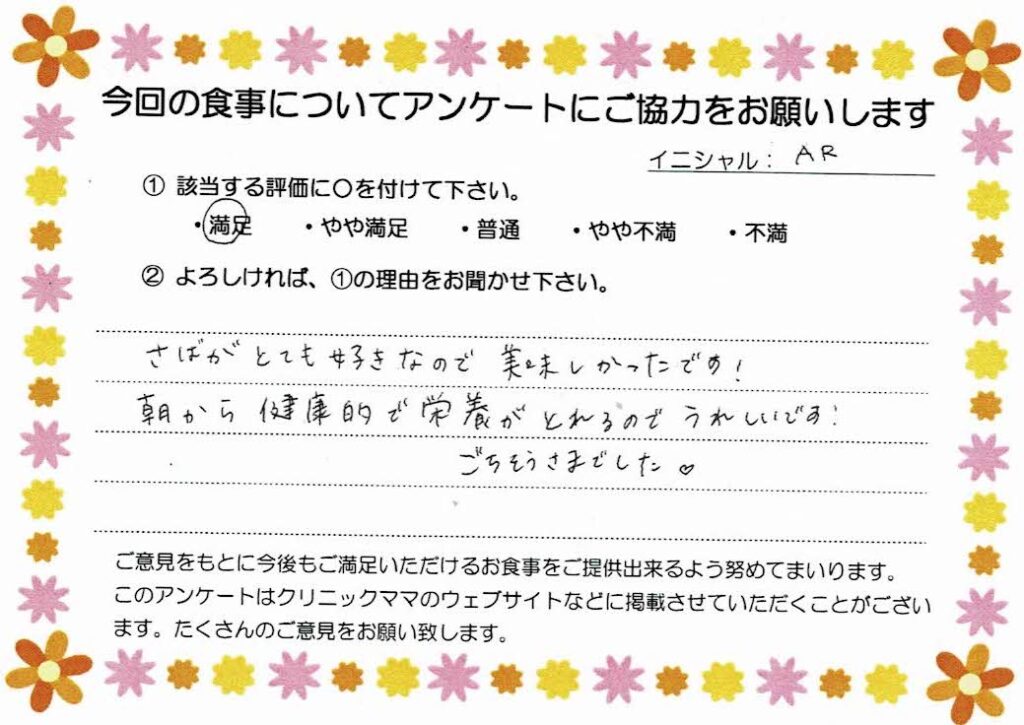 今回の食事についてアンケートにご協力をお願いします
イニシャル： AR
① 該当する評価に〇を付けて下さい。
・満足 ・やや満足 ・普通 ・やや不満 ・不満
② よろしければ、①の理由をお聞かせ下さい。
さばがとても好きなので 美味しかったです!
朝から 健康的で栄養が とれるので うれしいです!
ごちそうさまでした♡
ご意見をもとに今後もご満足いただけるお食事をご提供出来るよう努めてまいります。
このアンケートはクリニックママのウェブサイトなどに掲載させていただくことがござい
ます。たくさんのご意見をお願い致します。